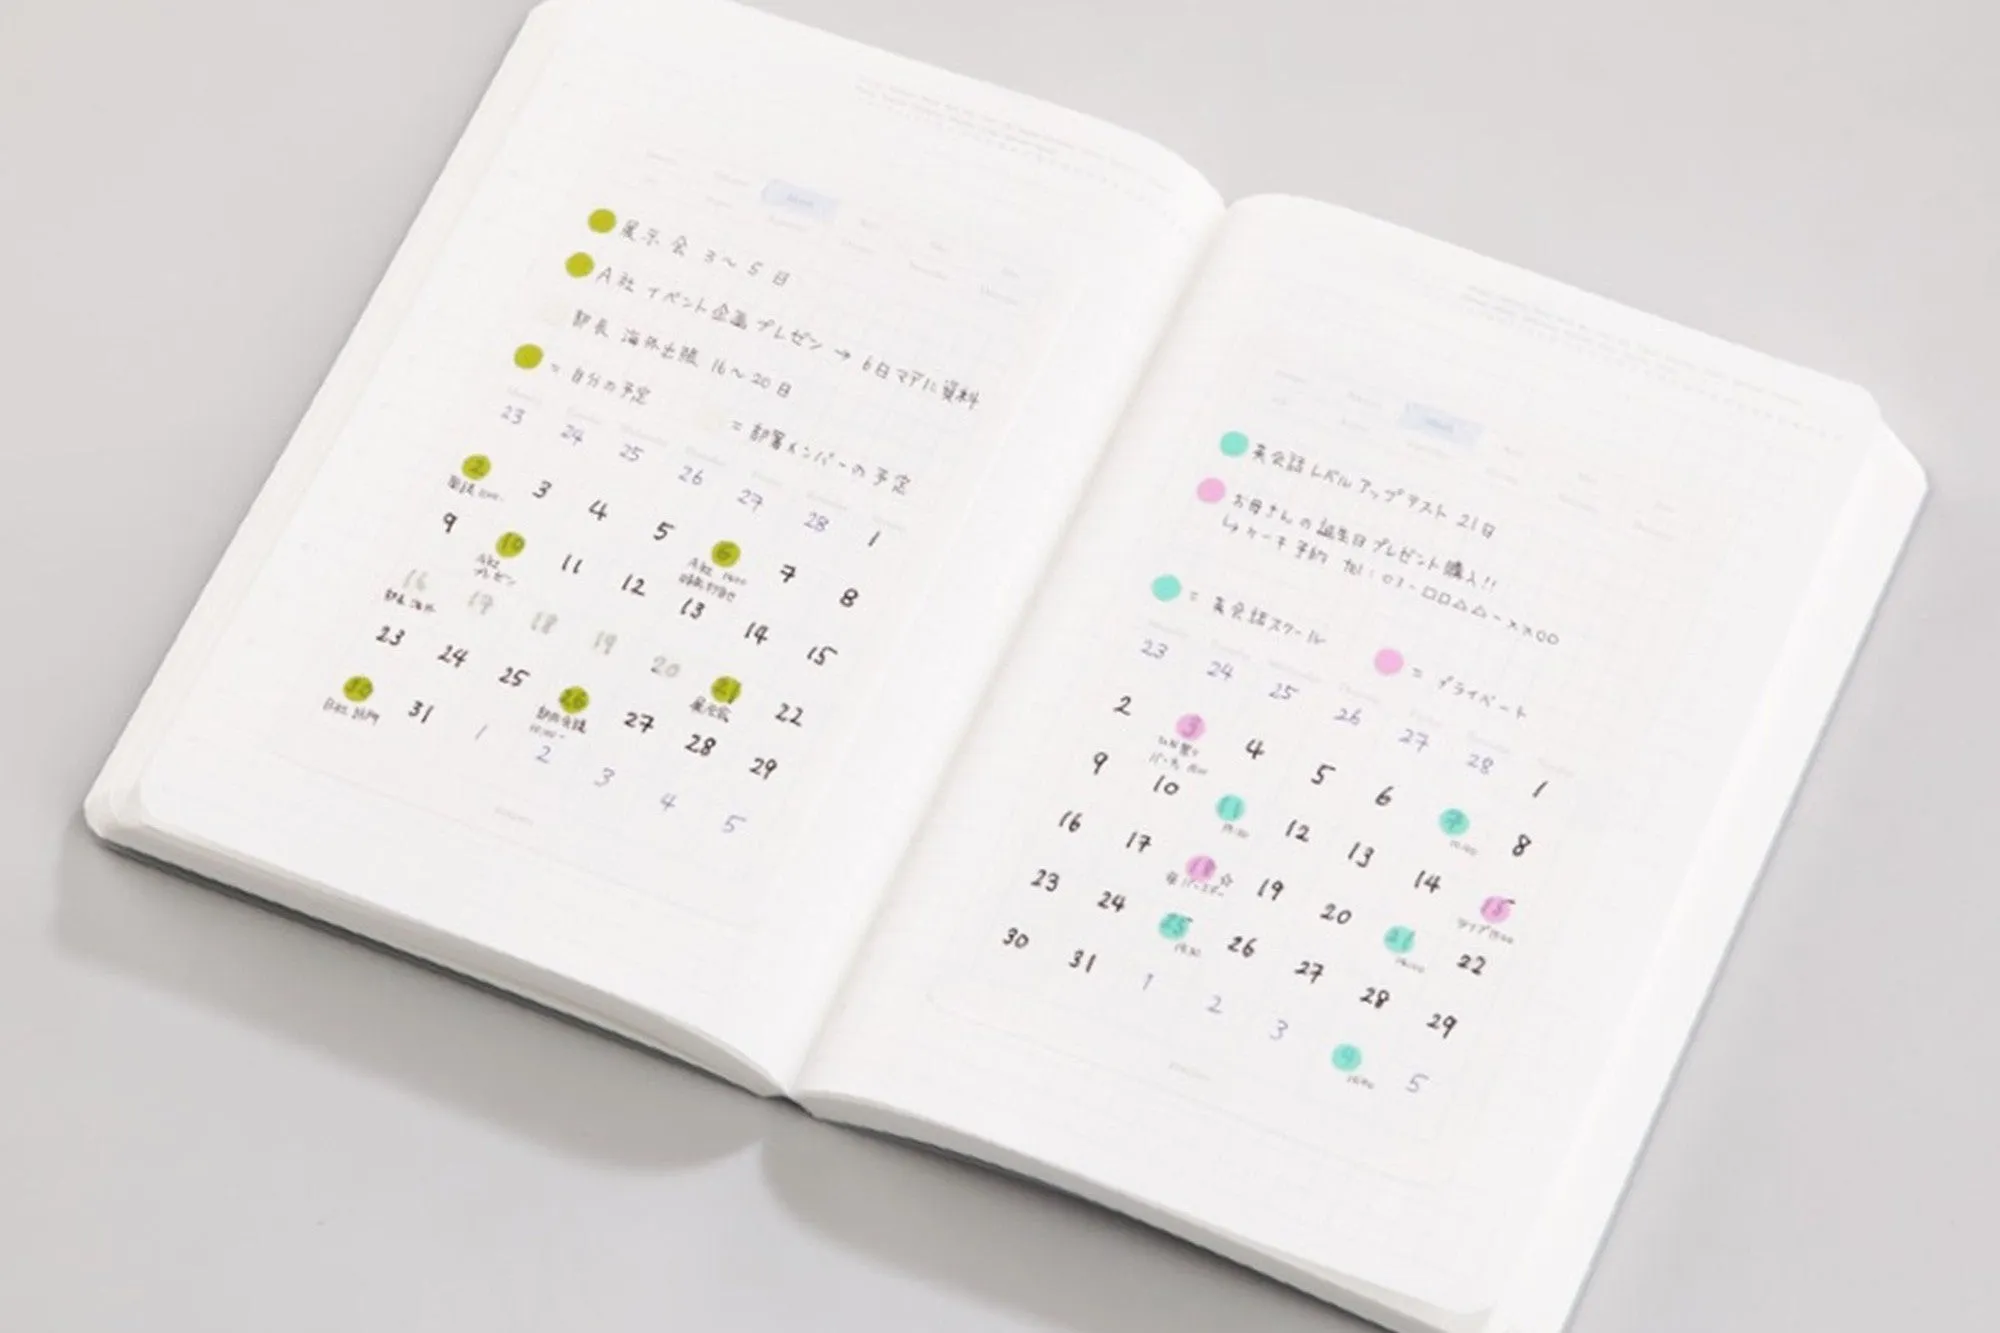 展示会 3〜5日
A社 イベント企画プレゼン → 6日マデに資料
部長 海外出張 16〜20日
= 自分の予定
= 部署メンバーの予定
23 24 25 26 27 28 1
2 3 4 5 6 7 8
A社
9 10 11 12 13 14 15
A社
プレゼン
16 17 18 19 20 21 22
部長 海外
展示会
23 24 25 26 27 28 29
部内会議
30 31 1 2 3 4 5
英会話レベルアップテスト 21日
お母さんの誕生日プレゼント購入!!
↳ケーキ予約 Tel:03-□□△△-××○○
= 英会話スクール
= プライベート
23 24 25 26 27 28 1
2 3 4 5 6 7 8
9 10 11 12 13 14 15
16 17 18 ☆ 19 20 21 22
23 24 25 26 27 28 29
30 31 1 2 3 5